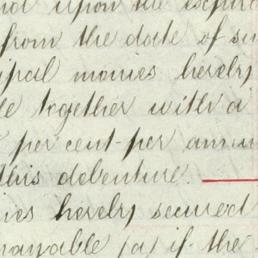 upon the
from the date of su
ipal monies hereby
together with a
per cent per annu
this debenture.
ies hereby secured
payable (a) if the